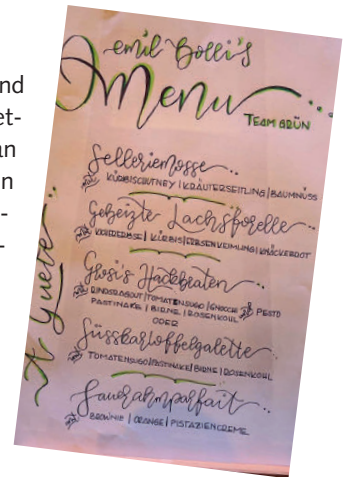 nd
et-
an
n
-
-
emil Bolli's
Menu
TEAM GRÜN
Selleriemosse
KÜRBISCHUTNEY | KRÄUTERSEITLING | BAUMNUSS
Gebeizte Lachsforelle
KÜRBIS | ERBSENKEIMLING | KNÄCKEBROT
Glosi's Hackbraten
RINDSRAGOUT | TOMATENSUGO | GNOCCHI PESTO
PASTINAKE | BIRNE | ROSENKOHL
ODER
Süsskartoffelgalette
TOMATENSUGO | PASTINAKE | BIRNE | ROSENKOHL
Sauerrahmparfait
BROWNIE | ORANGE | PISTAZIENCREME
Ä Guete